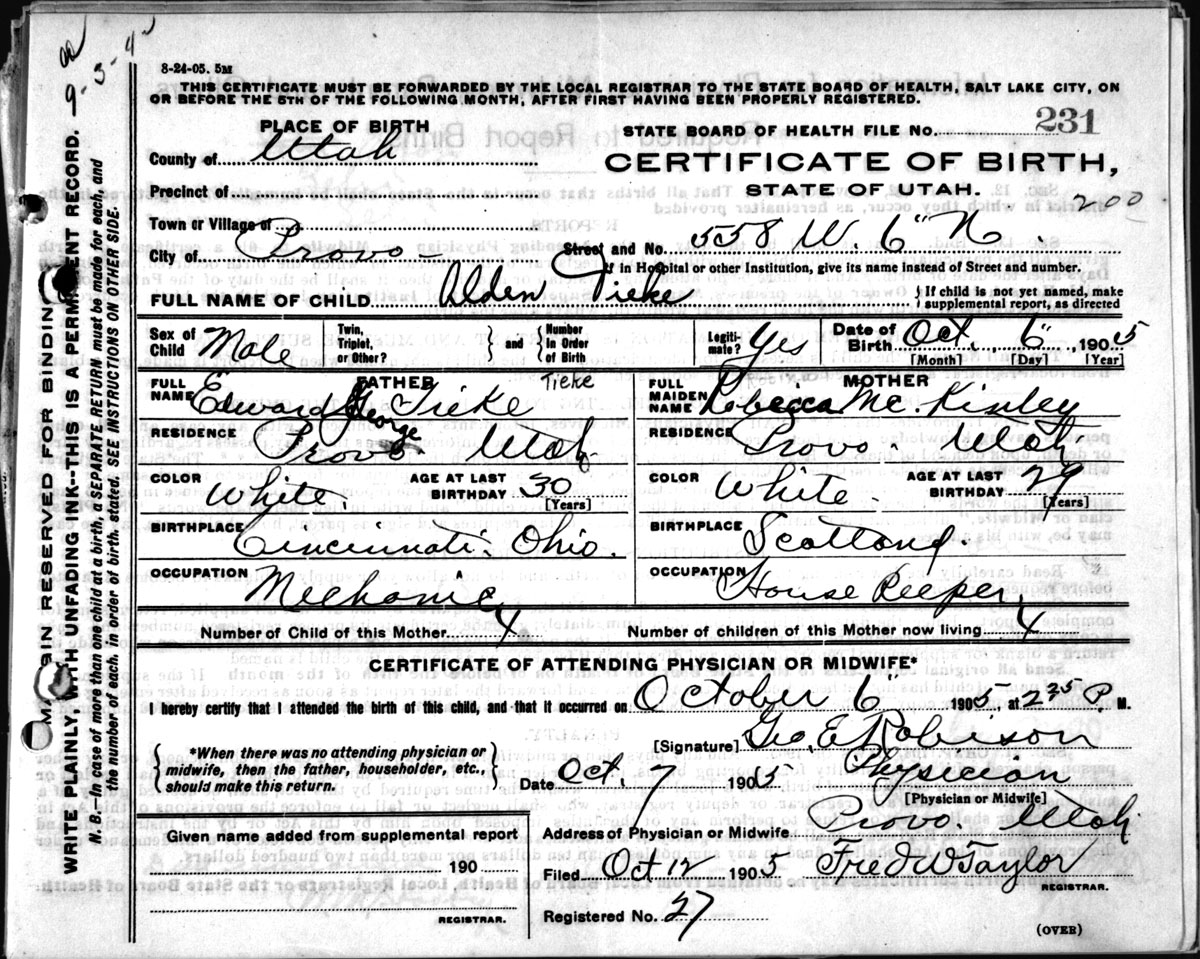 8-24-05. 5M
THIS CERTIFICATE MUST BE FORWARDED BY THE LOCAL REGISTRAR TO THE STATE BOARD OF HEALTH, SALT LAKE CITY, ON
OR BEFORE THE 5TH OF THE FOLLOWING MONTH, AFTER FIRST HAVING BEEN PROPERLY REGISTERED.
PLACE OF BIRTH
STATE BOARD OF HEALTH FILE No. 231
County of Utah
CERTIFICATE OF BIRTH,
Precinct of
STATE OF UTAH.
200
Town or Village of
City of Provo
Street and No. 558 W. 6" N.
If in Hospital or other Institution, give its name instead of Street and number.
FULL NAME OF CHILD Alden Tieke
If child is not yet named, make supplemental report, as directed
Sex of Child Male
Twin, Triplet, or Other?
and
Number in Order of Birth
Legitimate? Yes
Date of Birth Oct. 6" 1905
[Month] [Day] [Year]
FATHER
FULL NAME Edward George Tieke
Tieke
RESIDENCE Provo Utah
COLOR White
AGE AT LAST BIRTHDAY 30
[Years]
BIRTHPLACE Cincinnati. Ohio.
OCCUPATION Mechanic
MOTHER
FULL MAIDEN NAME Rebecca Mc. Kinley
RESIDENCE Provo Utah
COLOR White
AGE AT LAST BIRTHDAY 29
[Years]
BIRTHPLACE Scotland.
OCCUPATION House Keeper
Number of Child of this Mother 4
Number of children of this Mother now living 4
CERTIFICATE OF ATTENDING PHYSICIAN OR MIDWIFE*
I hereby certify that I attended the birth of this child, and that it occurred on October 6" 1905 at 2 35 P. M.
*When there was no attending physician or
midwife, then the father, householder, etc.,
should make this return.
[Signature] Geo. E Robison
Date Oct 7 1905
Physician
[Physician or Midwife]
Given name added from supplemental report
190
REGISTRAR.
Address of Physician or Midwife Provo. Utah.
Filed Oct 12 1905 Fred W Taylor
REGISTRAR.
Registered No. 27
(OVER)
MARGIN RESERVED FOR BINDING
WRITE PLAINLY, WITH UNFADING INK--THIS IS A PERMANENT RECORD.
N. B.--In case of more than one child at a birth, a SEPARATE RETURN must be made for each, and
the number of each, in order of birth, stated. SEE INSTRUCTIONS ON OTHER SIDE.